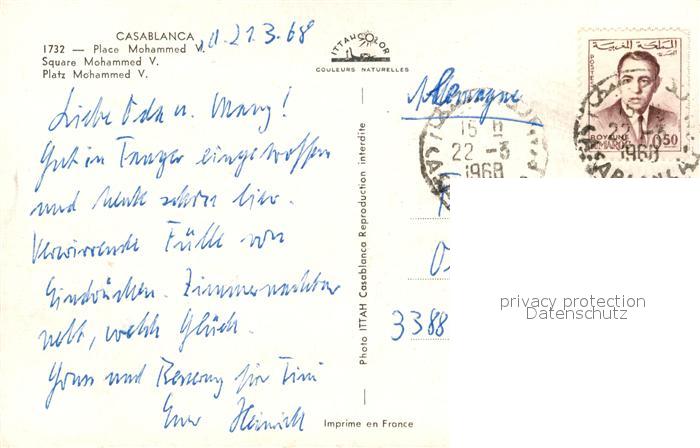 CASABLANCA
1732 — Place Mohammed V.
Square Mohammed V.
Platz Mohammed V.
21.3.68
Liebe Oda u. Many!
Gut in Tanger eingetroffen
und heute schon hier.
Verwirrende Fülle von
Eindrücken. Zimmernachbar
nett, welch Glück.
Gruss und Besserung für Fini
Euer Heinrich
ITTAHCOLOR
COULEURS NATURELLES
Photo ITTAH Casablanca Reproduction interdite
Imprime en France
Allemagne
المملكة المغربية
POSTES
ROYAUME
DU MAROC
0,50
16 H
22 -3
1968
CASABLANCA
22 -3
1968
CASABLANCA
3388
privacy protection
Datenschutz